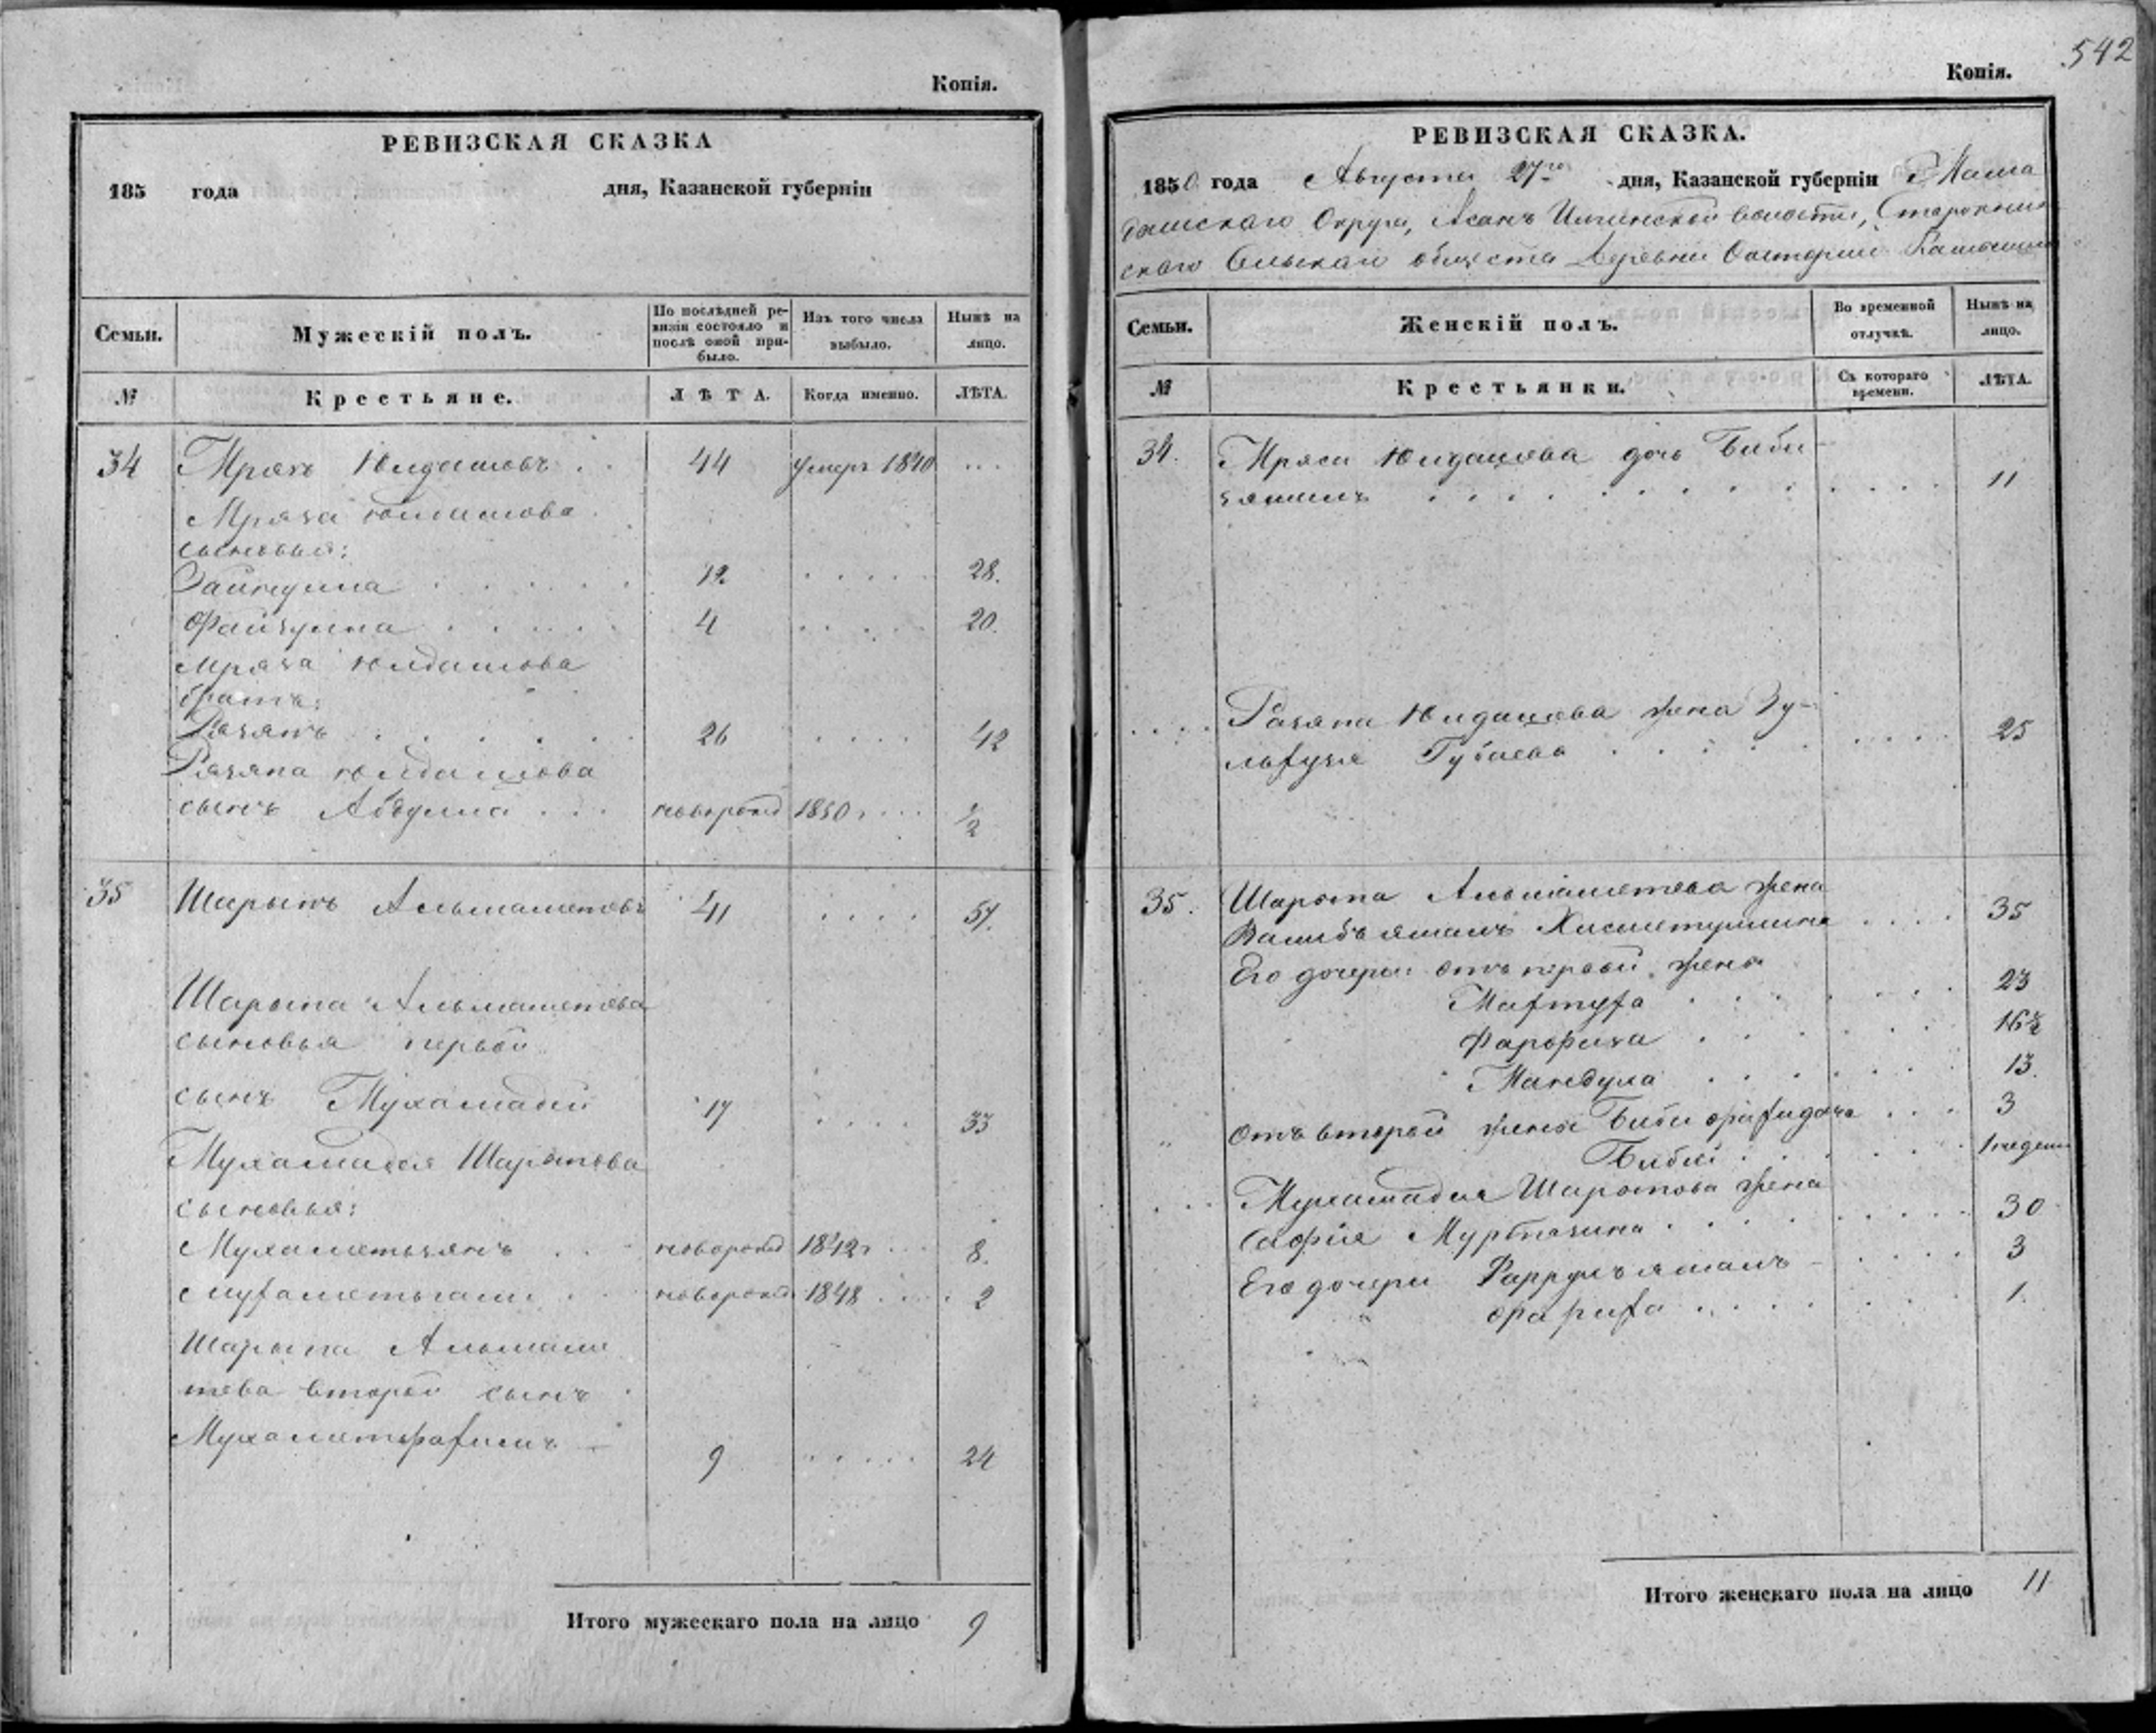 Копія.
РЕВИЗСКАЯ СКАЗКА
185 года дня, Казанской губерніи
Семьи.
Мужескій полъ.
По послѣдней ре-
визіи состояло и
послѣ оной при-
было.
Изъ того числа
выбыло.
Нынѣ на
лицо.
№
Крестьяне.
ЛѢТА.
Когда именно.
ЛѢТА.
34 Мрязъ Юлдашевъ 44 умеръ 1840
Мряза Юлдашева
сыновья:
Зайнулла 12 28.
Файзулла 4 20.
Мряза Юлдашева
братъ:
Разяпъ 26 42
Разяпа Юлдашева
сынъ Абдулла новорожд 1850 ½
35 Шарыпъ Альмаметевъ 41 57.
Шарыпа Альмаметева
сыновья первой
сынъ Мухамадій 17 33
Мухамадія Шарыпова
сыновья:
Мухаметьзянъ новорожд 1842 8.
новорожд 1848 2
Шарыпа Альмаме
тева второй сынъ
9 24
Итого мужескаго пола на лицо 9
542
Копія.
РЕВИЗСКАЯ СКАЗКА.
1850 года Августа 27го дня, Казанской губерніи Мама
дышскаго Округа, Асанъ Илгинской волости,
скаго Сельскаго общества Деревни
Семьи.
Женскій полъ.
Во временной
отлучкѣ.
Нынѣ на
лицо.
№
Крестьянки.
Съ котораго
времени.
ЛѢТА.
34. Мряза Юлдашева дочь Биби-
11
Разяпа Юлдашева жена Зу-
Губаева 25
35. Шарыпа Альмаметева жена
35
Его дочери отъ первой жены
23
16½
13.
отъ второй жены Биби 3
1 недели
Мухамадія Шарыпова жена
Сафія Муртазина 30
Его дочери 3
1.
Итого женскаго пола на лицо 11